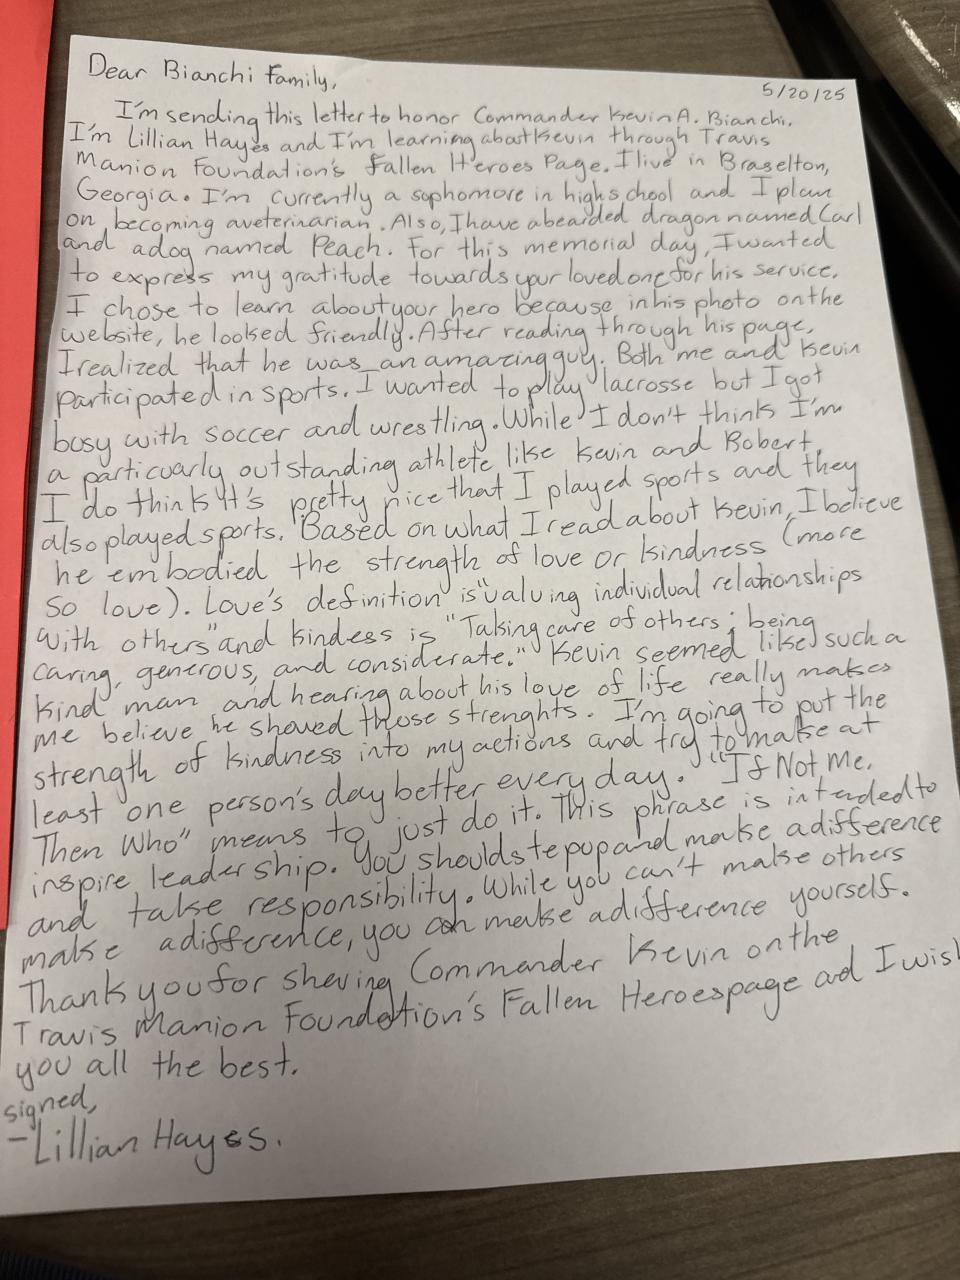 Dear Bianchi Family,
5/20/25
I'm sending this letter to honor Commander Kevin A. Bianchi.
I'm Lillian Hayes and I'm learning about Kevin through Travis
Manion Foundation's Fallen Heroes Page. I live in Braselton,
Georgia. I'm currently a sophomore in high school and I plan
on becoming a veterinarian. Also, I have a bearded dragon named Carl
and a dog named Peach. For this memorial day, I wanted
to express my gratitude towards your loved one for his service.
I chose to learn about your hero because in his photo on the
website, he looked friendly. After reading through his page,
I realized that he was an amazing guy. Both me and Kevin
participated in sports. I wanted to play lacrosse but I got
busy with soccer and wrestling. While I don't think I'm
a particuarly outstanding athlete like Kevin and Robert,
I do think it's pretty nice that I played sports and they
also played sports. Based on what I read about Kevin, I believe
he embodied the strength of love or kindness (more
so love). Love's definition is "valuing individual relationships
with others" and kindess is "Taking care of others; being
caring, generous, and considerate." Kevin seemed like such a
kind man and hearing about his love of life really makes
me believe he showed those strenghts. I'm going to put the
strength of kindness into my actions and try to make at
least one person's day better every day. "If Not Me,
Then Who" means to just do it. This phrase is intended to
inspire leadership. You should step up and make a difference
and take responsibility. While you can't make others
make a difference, you can make a difference yourself.
Thank you for sharing Commander Kevin on the
Travis Manion Foundation's Fallen Heroes page and I wish
you all the best.
signed,
-Lillian Hayes.